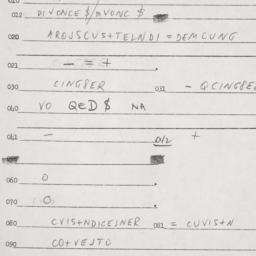 022 DIVONCE $/=VONC $
020 AROJSCUS+TELNDI=DEMCUNG
021 - = +
030 CINGBER 031 - QCINGBEE
040 VO QED $ NA
041 - 042 +
060 O
070 O
080 CVIS+NDICEJNER 081 = CUVIS+N
090 CO+VEJTO